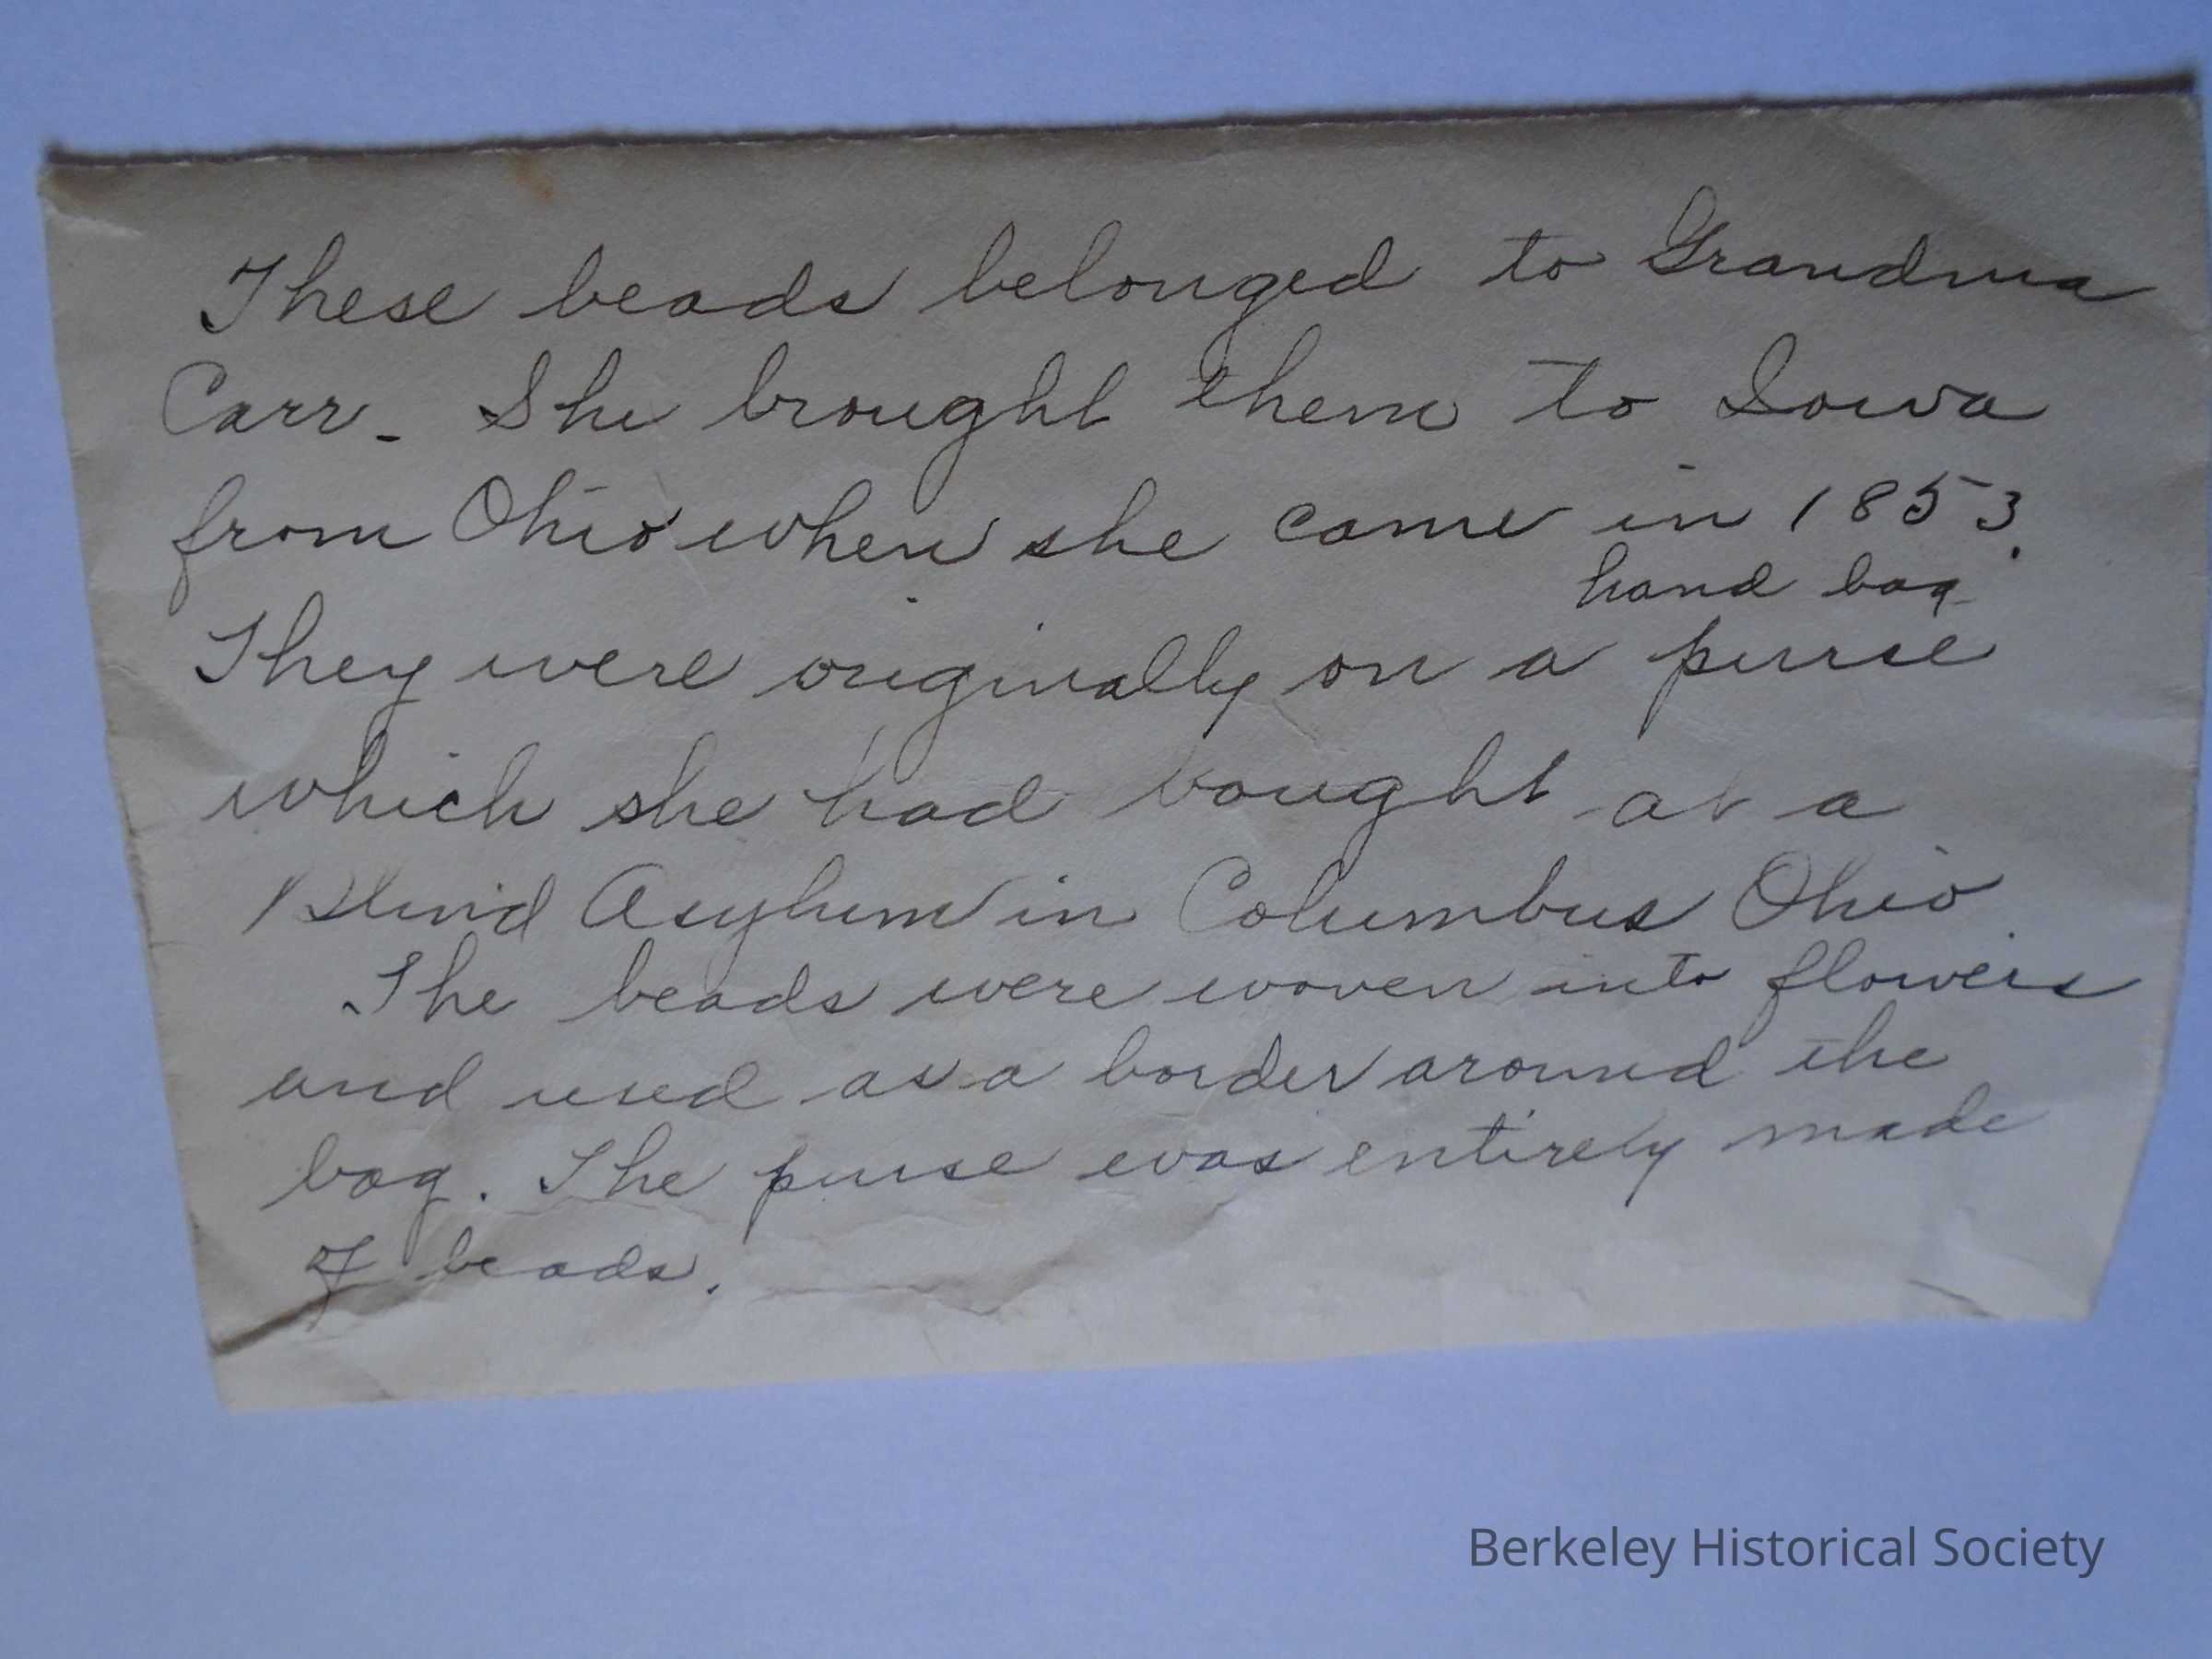 These beads belonged to Grandma
Carr. She brought them to Iowa
from Ohio when she came in 1853.
hand bag
They were originally on a purse
which she had bought at a
Blind Asylum in Columbus Ohio.
The beads were woven into flowers
and used as a border around the
bag. The purse was entirely made
of beads.
Berkeley Historical Society